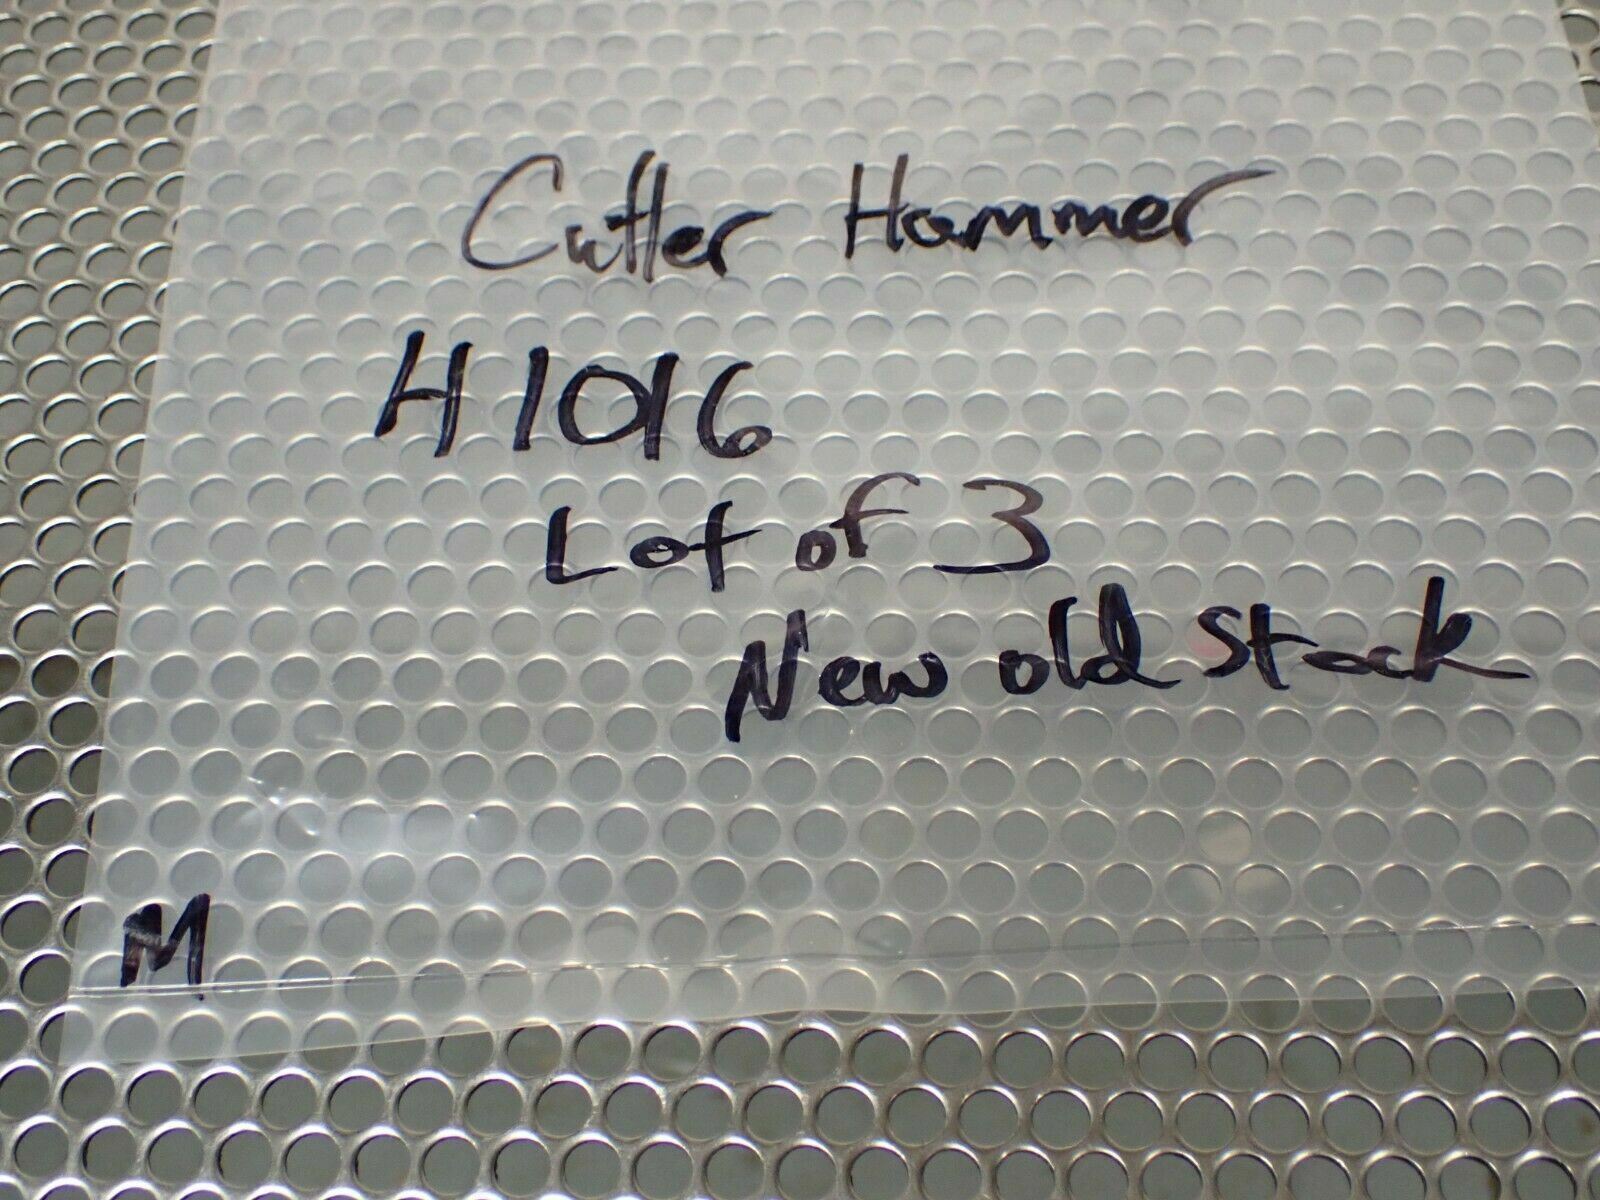 Cutler Hammer
H1016
Lot of 3
New old Stock
M